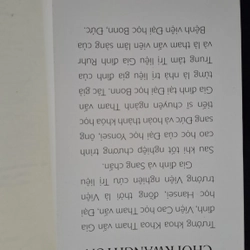 CHOI KWANGHYUN
Trưởng khoa Khoa Tham vấn Gia
đình, Viện Cao học Tham vấn, Đại
học Hansei, đồng thời là Viện
trưởng Viện nghiên cứu Trị liệu
Gia đình và Sang chấn.
Sau khi tốt nghiệp chương trình
cao học của Đại học Yonsei, ông
sang Đức và hoàn thành khóa học
tiến sĩ chuyên ngành Tham vấn
Gia đình tại Đại học Bonn. Tác giả
từng là nhà trị liệu gia đình của
Trung tâm Trị liệu Gia đình Ruhr
và là tham vấn viên lâm sàng của
Bệnh viện Đại học Bonn, Đức.